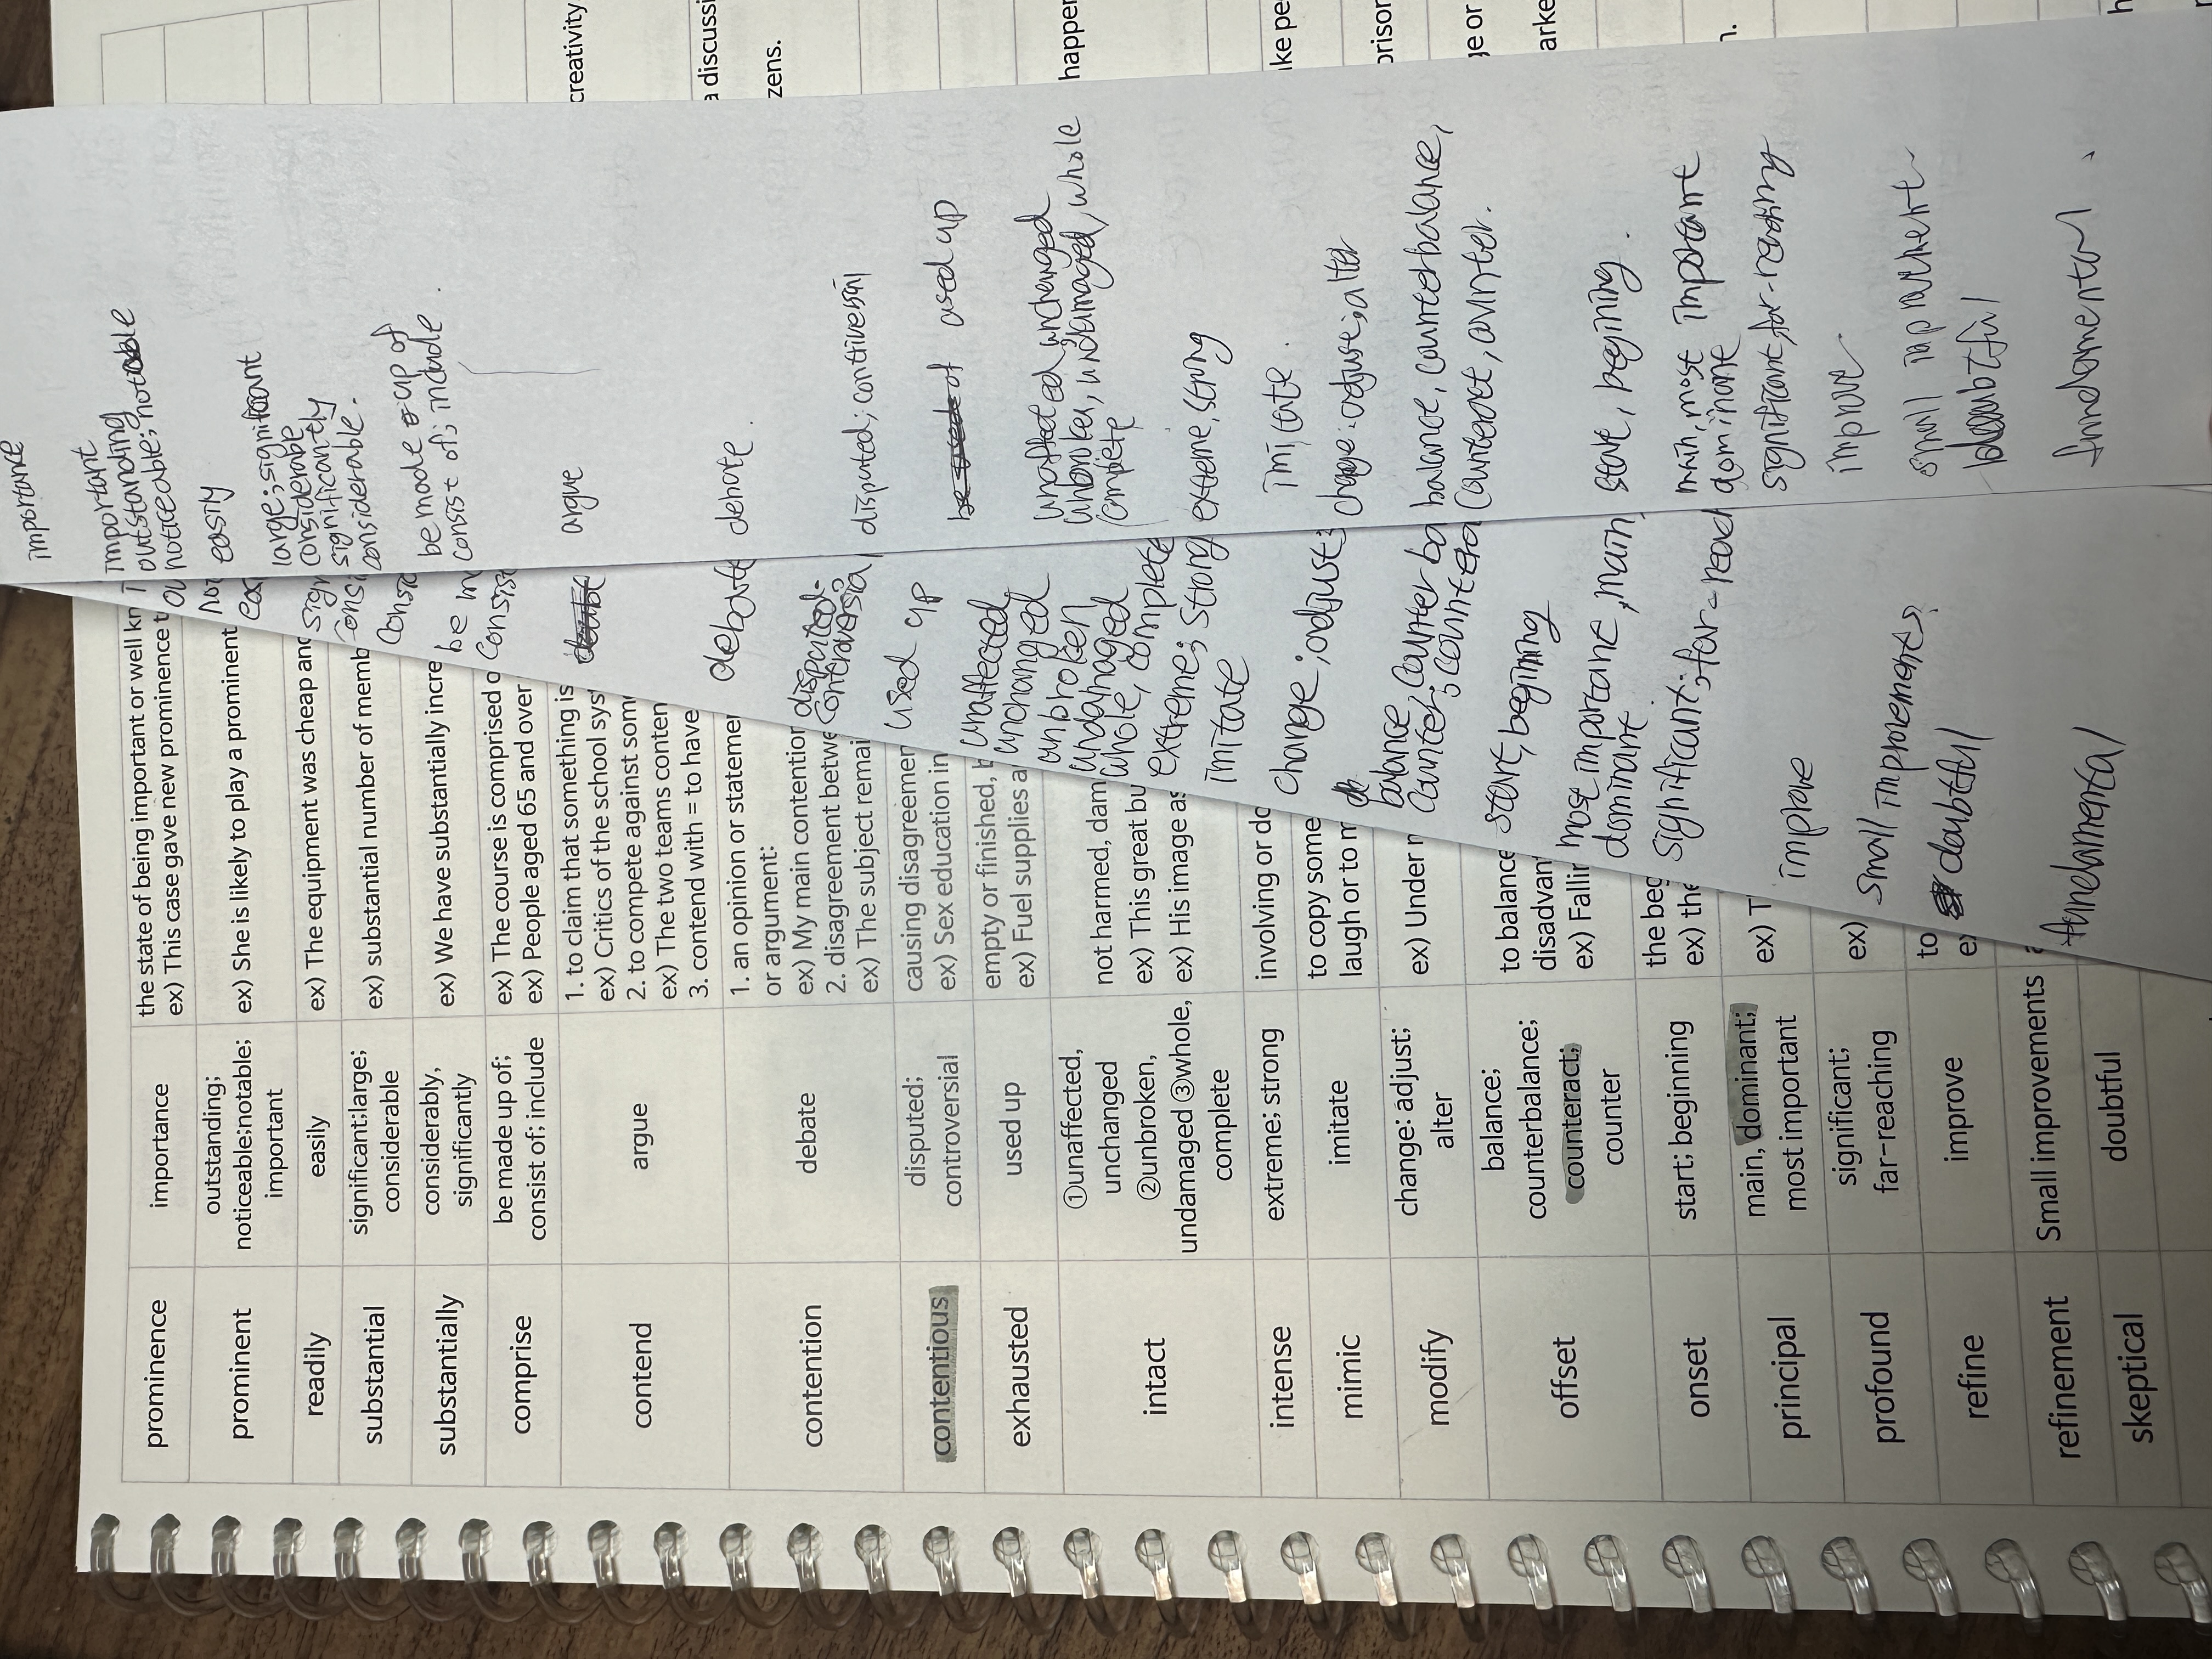 prominence
importance
the state of being important or well kn
ex) This case gave new prominence t
prominent
outstanding;
noticeable;notable;
important
ex) She is likely to play a prominent
readily
easily
ex) The equipment was cheap and
substantial
significant;large;
considerable
ex) substantial number of memb
substantially
considerably,
significantly
ex) We have substantially incre
comprise
be made up of;
consist of; include
ex) The course is comprised o
ex) People aged 65 and over
contend
argue
1. to claim that something is
ex) Critics of the school sys
2. to compete against som
ex) The two teams conten
3. contend with = to have
contention
debate
1. an opinion or statemen
or argument:
ex) My main contention
2. disagreement betwe
ex) The subject remai
contentious
disputed;
controversial
causing disagreemen
ex) Sex education in
exhausted
used up
empty or finished, b
ex) Fuel supplies a
intact
①unaffected,
unchanged
②unbroken,
undamaged ③whole,
complete
not harmed, dam
ex) This great bu
ex) His image as
intense
extreme; strong
involving or do
mimic
imitate
to copy some
laugh or to m
modify
change: adjust;
alter
ex) Under n
offset
balance;
counterbalance;
counteract;
counter
to balance
disadvant
ex) Fallin
onset
start; beginning
the beg
ex) the
principal
main, dominant;
most important
ex) T
profound
significant;
far-reaching
ex)
refine
improve
to
ex
refinement
Small improvements
skeptical
doubtful
be m
consist
debate
disputed
controversial
used up
unaffected
unchanged
unbroken
undamaged
whole, complete
extreme; strong
imitate
change; adjust;
balance, counter ba
counter; countera
start, beginning
most important, main,
dominant
significant; far-reach
improve
small improvements
doubtful
fundamental
importance
important
outstanding
noticeable; notable
easily
large; significant
considerable
significantly
considerable.
be made up of
consist of; include.
argue
debate.
disputed; contriversial
used up
unaffected, unchanged
unbroken, undamaged, whole
complete
extreme, strong
imitate.
change: adjuse; alter
balance, counterbalance,
counteract, counter.
start, begining.
main, most important
dominant
significant, far-reaching
improve
small improvement
doubtful
fundamental
creativity
a discussi
zens.
happen
ke pe
prison
ge or
arke
n.